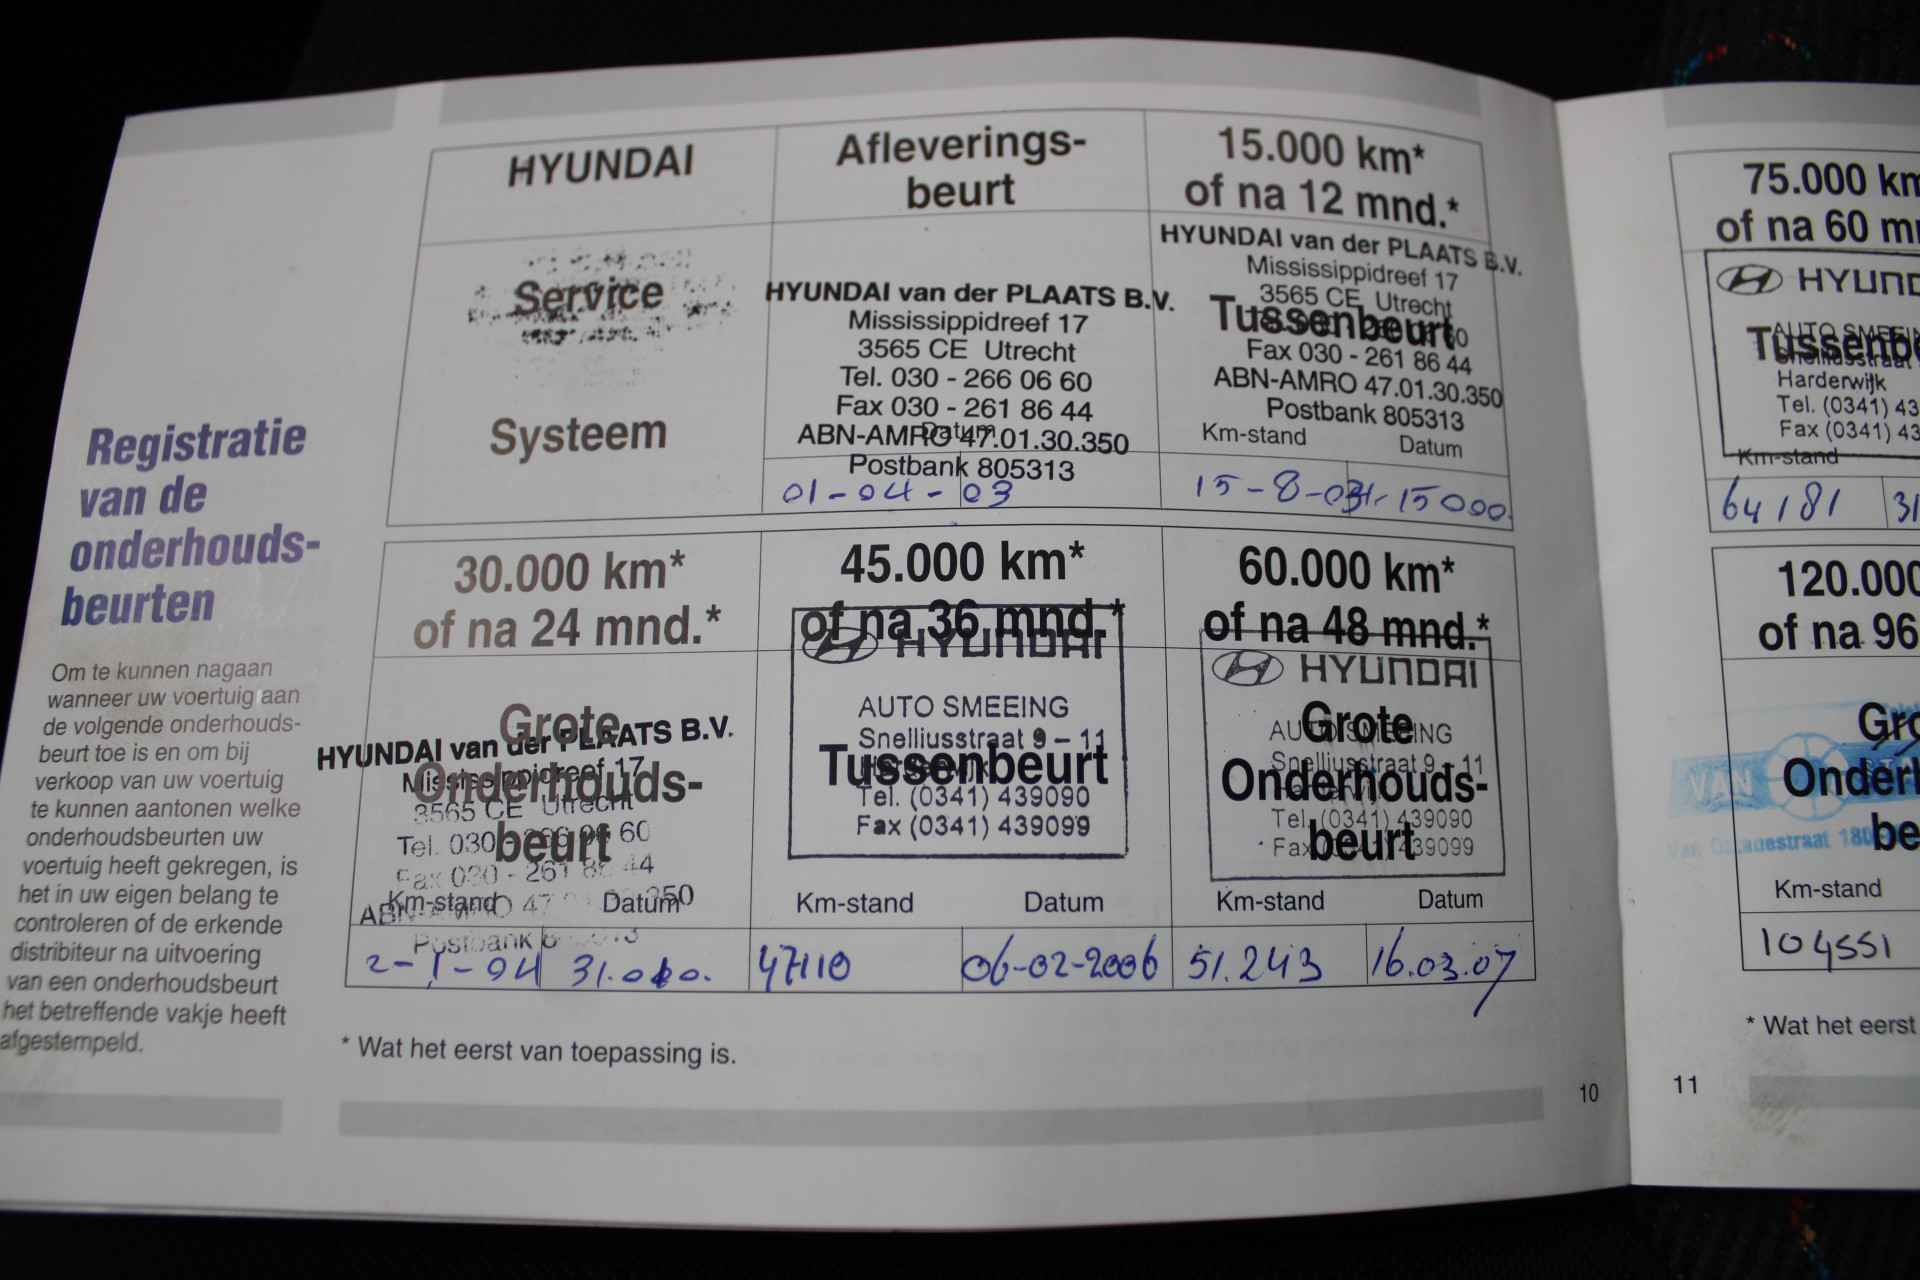 Registratie
van de
onderhouds-
beurten
Om te kunnen nagaan
wanneer uw voertuig aan
de volgende onderhouds-
beurt toe is en om bij
verkoop van uw voertuig
te kunnen aantonen welke
onderhoudsbeurten uw
voertuig heeft gekregen, is
het in uw eigen belang te
controleren of de erkende
distribiteur na uitvoering
van een onderhoudsbeurt
het betreffende vakje heeft
afgestempeld.
HYUNDAI
Service
Systeem
Afleverings-
beurt
HYUNDAI van der PLAATS B.V.
Mississippidreef 17
3565 CE Utrecht
Tel. 030 - 266 06 60
Fax 030 - 261 86 44
Datum
ABN-AMRO 47.01.30.350
Postbank 805313
01-04-03
15.000 km*
of na 12 mnd.*
HYUNDAI van der PLAATS B.V.
Mississippidreef 17
3565 CE Utrecht
Tussenbeurt
Fax 030 - 261 86 44
ABN-AMRO 47.01.30.350
Postbank 805313
Km-stand Datum
15-8-03 15000.
30.000 km*
of na 24 mnd.*
Grote
HYUNDAI van der PLAATS B.V.
Mississippidreef 17
Onderhouds-
3565 CE Utrecht
Tel. 030 60
beurt
Fax 030 - 261 86 44
Km-stand Datum
Postbank
31.
45.000 km*
of na 36 mnd.*
HYUNDAI
AUTO SMEEING
Snelliusstraat 9 – 11
Tussenbeurt
Tel. (0341) 439090
Fax (0341) 439099
Km-stand Datum
47110 06-02-2006
60.000 km*
of na 48 mnd.*
HYUNDAI
Grote
AUTO SMEEING
Snelliusstraat 9 – 11
Onderhouds-
Tel. (0341) 439090
beurt
Fax 439099
Km-stand Datum
51.243 16.03.07
* Wat het eerst van toepassing is.
10
75.000 km
of na 60
HYUND
AUTO SMEEIN
Tussenb
Snelliusstraat
Harderwijk
Tel. (0341) 43
Fax (0341) 43
Km-stand
64181 31
120.000
of na 96
Gro
VAN
Onderh
be
Km-stand
104551
* Wat het eerst
11